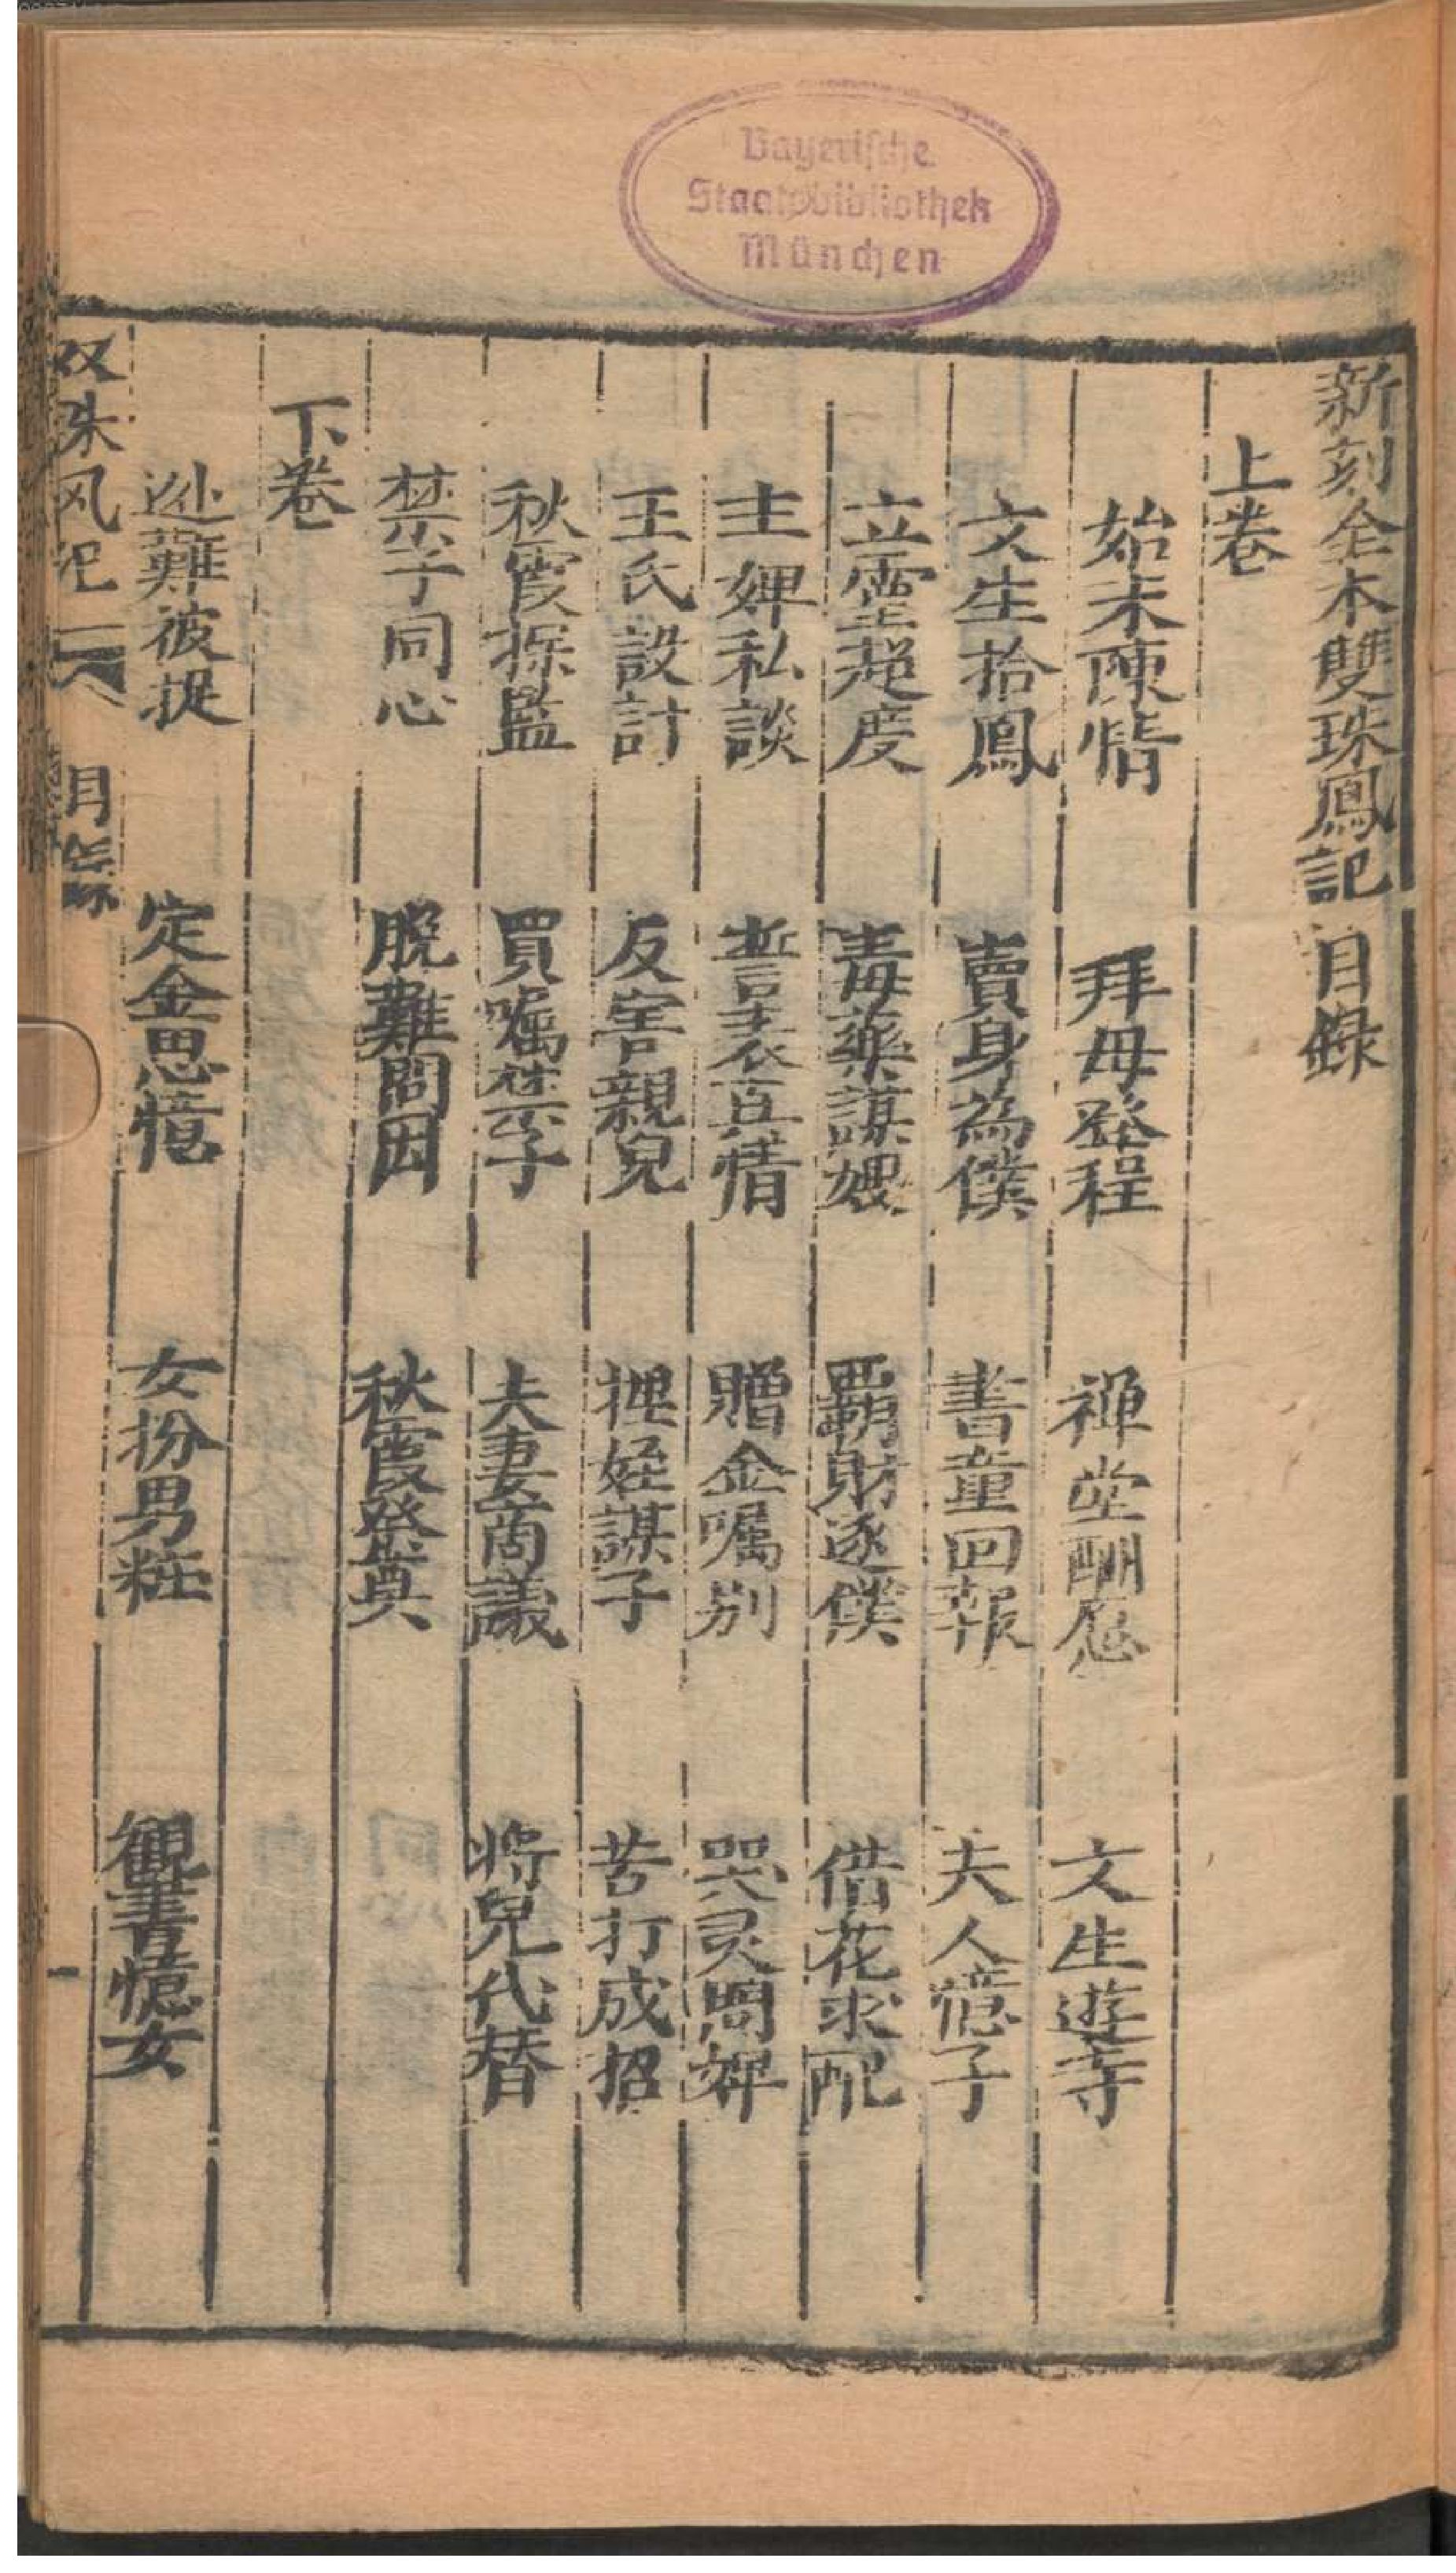 Bayerische
Staatsbibliothek
München
新刻全本雙珠鳳記 目錄
上卷
始末陳情 拜母登程 禅堂酬愿 文生遊寺
文生拾鳳 賣身為僕 書童回報 夫人憶子
立靈超度 毒藥謀嫂 覇財逐僕 借花求配
主婢私談 誓表真情 贈金嘱别 哭灵問婢
王氏設計 反害親兒 捚姪謀子 苦打成招
秋霞探監 買嘱禁子 夫妻商議 將兒代替
禁子同心 脫難問因 秋霞祭奠
下卷
逃難被捉 定金思憶 女扮男粧 観書憶女
双朱风记 目录 一